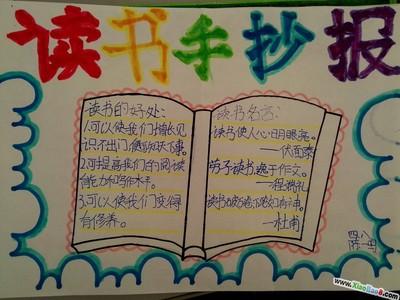 读书手抄报
读书的好处:
1.可以使我们增长见
识不出门便知天下事。
2.可提高我们的阅读
能力和写作水平。
3.可以使我们变得
有修养。
读书名言:
读书使人心明眼亮。
——伏尔泰
劳于读书,逸于作文。
——程端礼
读书破万卷,下笔如有神。
——杜甫
四、八
www.XiaoBao8.com